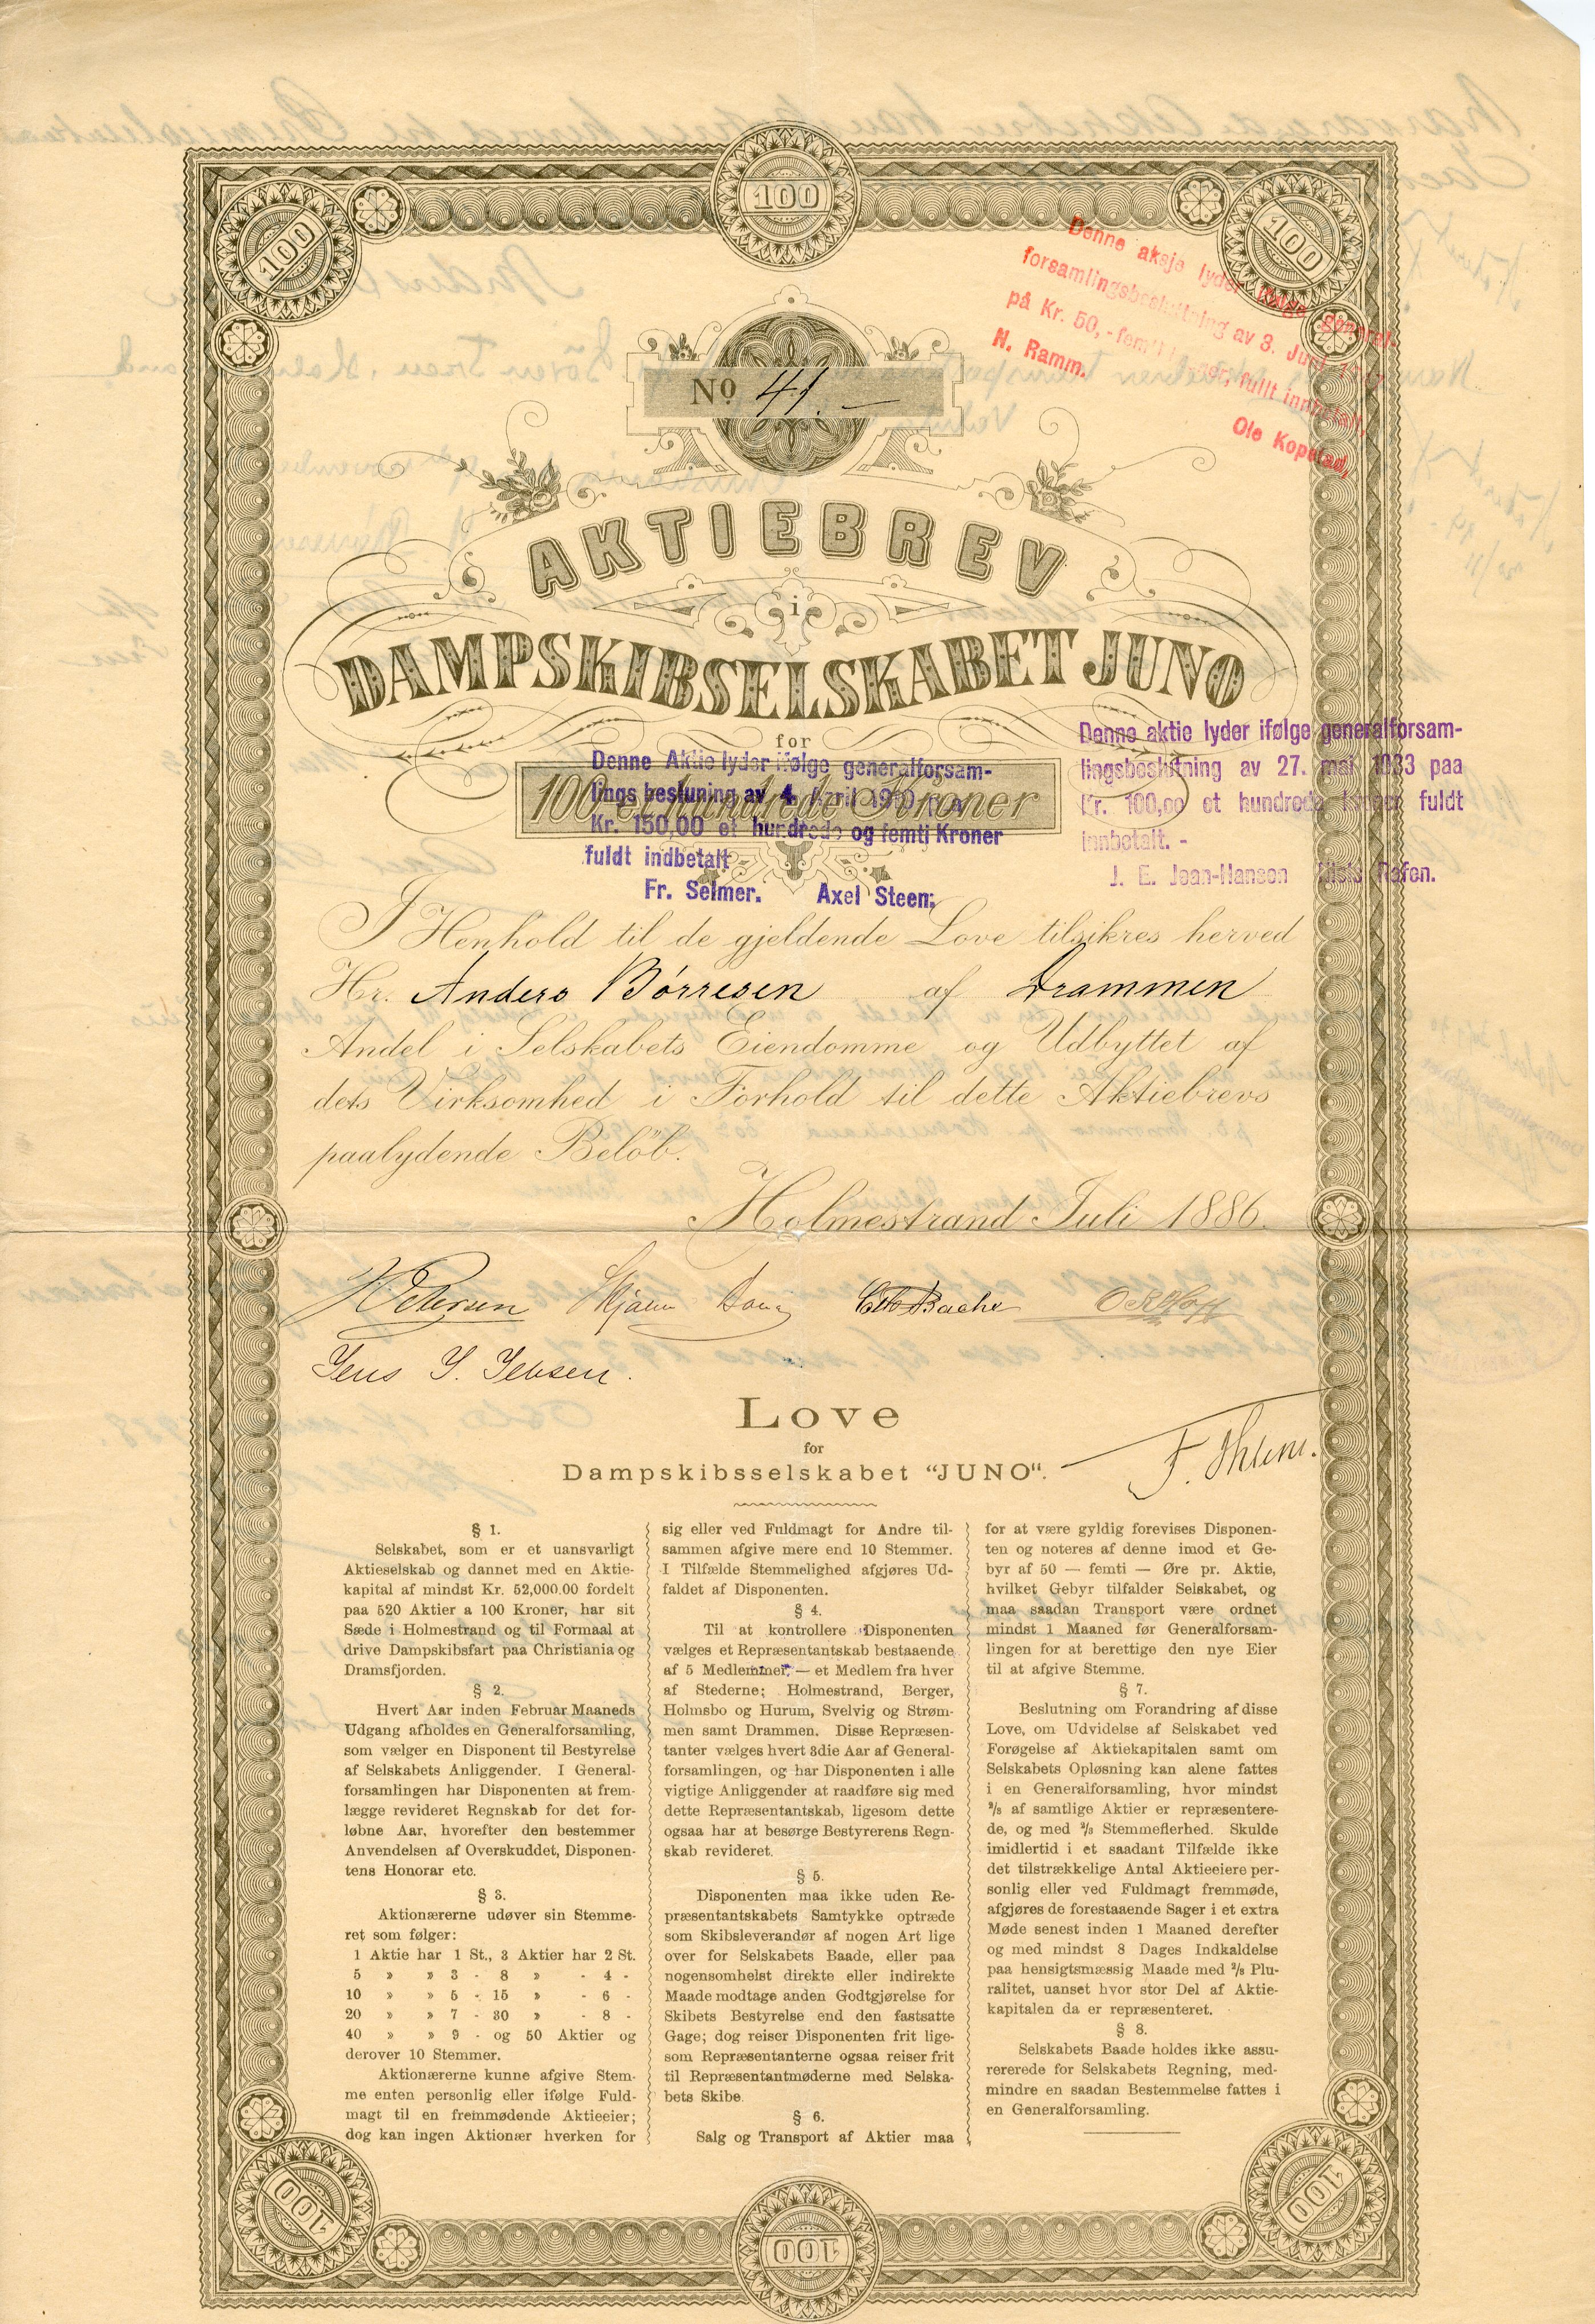 100
100
100
Denne aksje lyder ifølge general-
forsamlingsbeslutning av 3. Juni
på Kr. 50,- femti kroner, fullt innbetalt,
N. Ramm.
Ole Kopstad,
No 41. —
AKTIEBREV
i
DAMPSKIBSELSKABET JUNO
for
100 et hundrede Kroner
Denne Aktie lyder ifølge generalforsam-
lings beslutning av 4. April
Kr. 150,00 et hundrede og femti Kroner
fuldt indbetalt
Fr. Selmer. Axel Steen;
Denne aktie lyder ifølge generalforsam-
lingsbeslutning av 27. mai 1933 paa
Kr. 100,00 et hundrede kroner fuldt
innbetalt. -
J. E. Jean-Hansen Rafen.
I Henhold til de gjeldende Love tilsikres herved
Hr. Anders Börresen af Drammen
Andel i Selskabets Eiendomme og Udbyttet af
dets Virksomhed i Forhold til dette Aktiebrevs
paalydende Belöb.
Holmestrand Juli 1886.
Petersen Bache
Jens J. Jebsen.
Love
for
Dampskibsselskabet "JUNO".
F.
§ 1.
Selskabet, som er et uansvarligt
Aktieselskab og dannet med en Aktie-
kapital af mindst Kr. 52,000.00 fordelt
paa 520 Aktier a 100 Kroner, har sit
Sæde i Holmestrand og til Formaal at
drive Dampskibsfart paa Christiania og
Dramsfjorden.
§ 2.
Hvert Aar inden Februar Maaneds
Udgang afholdes en Generalforsamling,
som vælger en Disponent til Bestyrelse
af Selskabets Anliggender. I General-
forsamlingen har Disponenten at frem-
lægge revideret Regnskab for det for-
løbne Aar, hvorefter den bestemmer
Anvendelsen af Overskuddet, Disponen-
tens Honorar etc.
§ 3.
Aktionærerne udøver sin Stemme-
ret som følger:
1 Aktie har 1 St., 3 Aktier har 2 St.
5 » » 3 - 8 » - 4 -
10 » » 5 - 15 » - 6 -
20 » » 7 - 30 » - 8 -
40 » » 9 - og 50 Aktier og
derover 10 Stemmer.
Aktionærerne kunne afgive Stem-
me enten personlig eller ifølge Fuld-
magt til en fremmødende Aktieeier;
dog kan ingen Aktionær hverken for
sig eller ved Fuldmagt for Andre til-
sammen afgive mere end 10 Stemmer.
I Tilfælde Stemmelighed afgjøres Ud-
faldet af Disponenten.
§ 4.
Til at kontrollere Disponenten
vælges et Repræsentantskab bestaaende
af 5 Medlemmer, — et Medlem fra hver
af Stederne; Holmestrand, Berger,
Holmsbo og Hurum, Svelvig og Strøm-
men samt Drammen. Disse Repræsen-
tanter vælges hvert 3die Aar af General-
forsamlingen, og har Disponenten i alle
vigtige Anliggender at raadføre sig med
dette Repræsentantskab, ligesom dette
ogsaa har at besørge Bestyrerens Regn-
skab revideret.
§ 5.
Disponenten maa ikke uden Re-
præsentantskabets Samtykke optræde
som Skibsleverandør af nogen Art lige
over for Selskabets Baade, eller paa
nogensomhelst direkte eller indirekte
Maade modtage anden Godtgjørelse for
Skibets Bestyrelse end den fastsatte
Gage; dog reiser Disponenten frit lige-
som Repræsentanterne ogsaa reiser frit
til Repræsentantmøderne med Selska-
bets Skibe.
§ 6.
Salg og Transport af Aktier maa
for at være gyldig forevises Disponen-
ten og noteres af denne imod et Ge-
byr af 50 — femti — Øre pr. Aktie,
hvilket Gebyr tilfalder Selskabet, og
maa saadan Transport være ordnet
mindst 1 Maaned før Generalforsam-
lingen for at berettige den nye Eier
til at afgive Stemme.
§ 7.
Beslutning om Forandring af disse
Love, om Udvidelse af Selskabet ved
Forøgelse af Aktiekapitalen samt om
Selskabets Opløsning kan alene fattes
i en Generalforsamling, hvor mindst
⅔ af samtlige Aktier er repræsentere-
de, og med ⅔ Stemmeflerhed. Skulde
imidlertid i et saadant Tilfælde ikke
det tilstrækkelige Antal Aktieeiere per-
sonlig eller ved Fuldmagt fremmøde,
afgjøres de forestaaende Sager i et extra
Møde senest inden 1 Maaned derefter
og med mindst 8 Dages Indkaldelse
paa hensigtsmæssig Maade med ⅔ Plu-
ralitet, uanset hvor stor Del af Aktie-
kapitalen da er repræsenteret.
§ 8.
Selskabets Baade holdes ikke assu-
rererede for Selskabets Regning, med-
mindre en saadan Bestemmelse fattes i
en Generalforsamling.
100
100
100